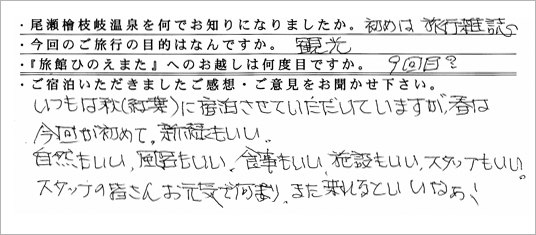 ・尾瀬檜枝岐温泉を何でお知りになりましたか。初めは 旅行雑誌。
・今回のご旅行の目的はなんですか。 観光
・『旅館ひのえまた』へのお越しは何度目ですか。 9回目?
・ご宿泊いただきましたご感想・ご意見をお聞かせ下さい。
いつもは秋(紅葉)に宿泊させていただいていますが、春は
今回が初めて。新緑もいい。
自然もいい、風呂もいい、食事もいい、施設もいい、スタッフもいい。
スタッフの皆さんお元気で何より、また来れるといいなぁ!